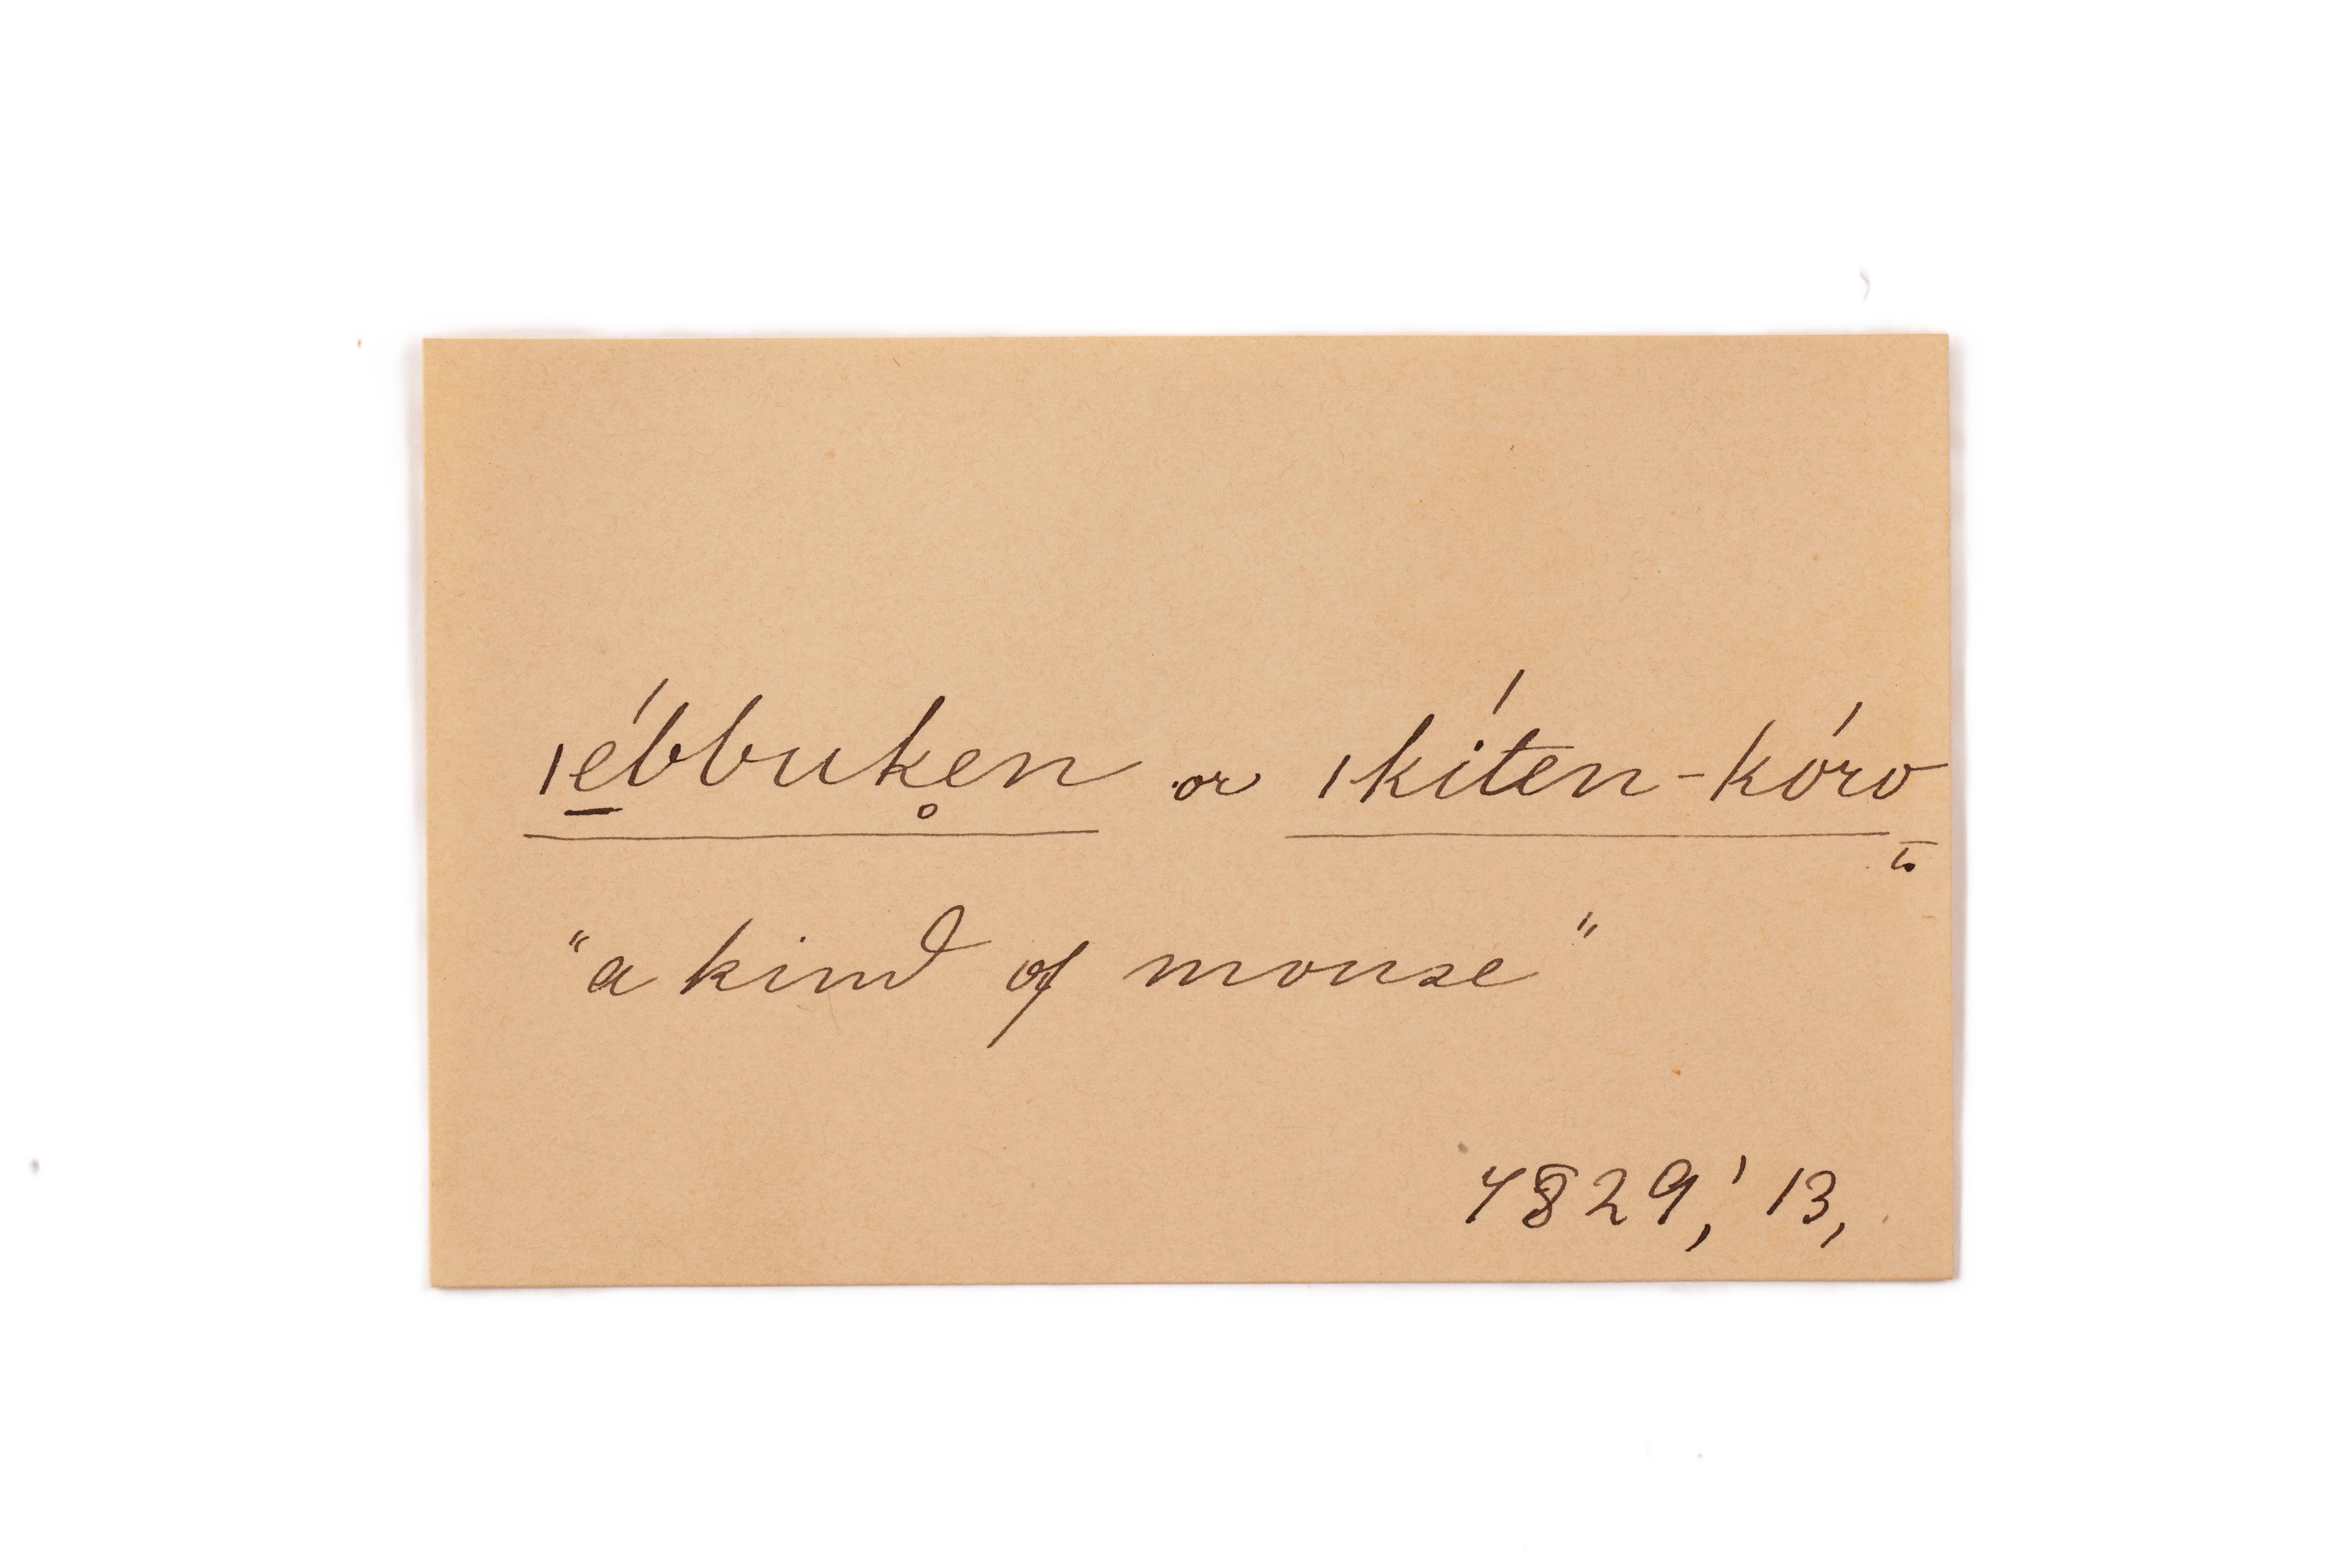 ı é̱bbuk̥en or ı kíten-kóro
"a kind of mouse"
1829,' 13,